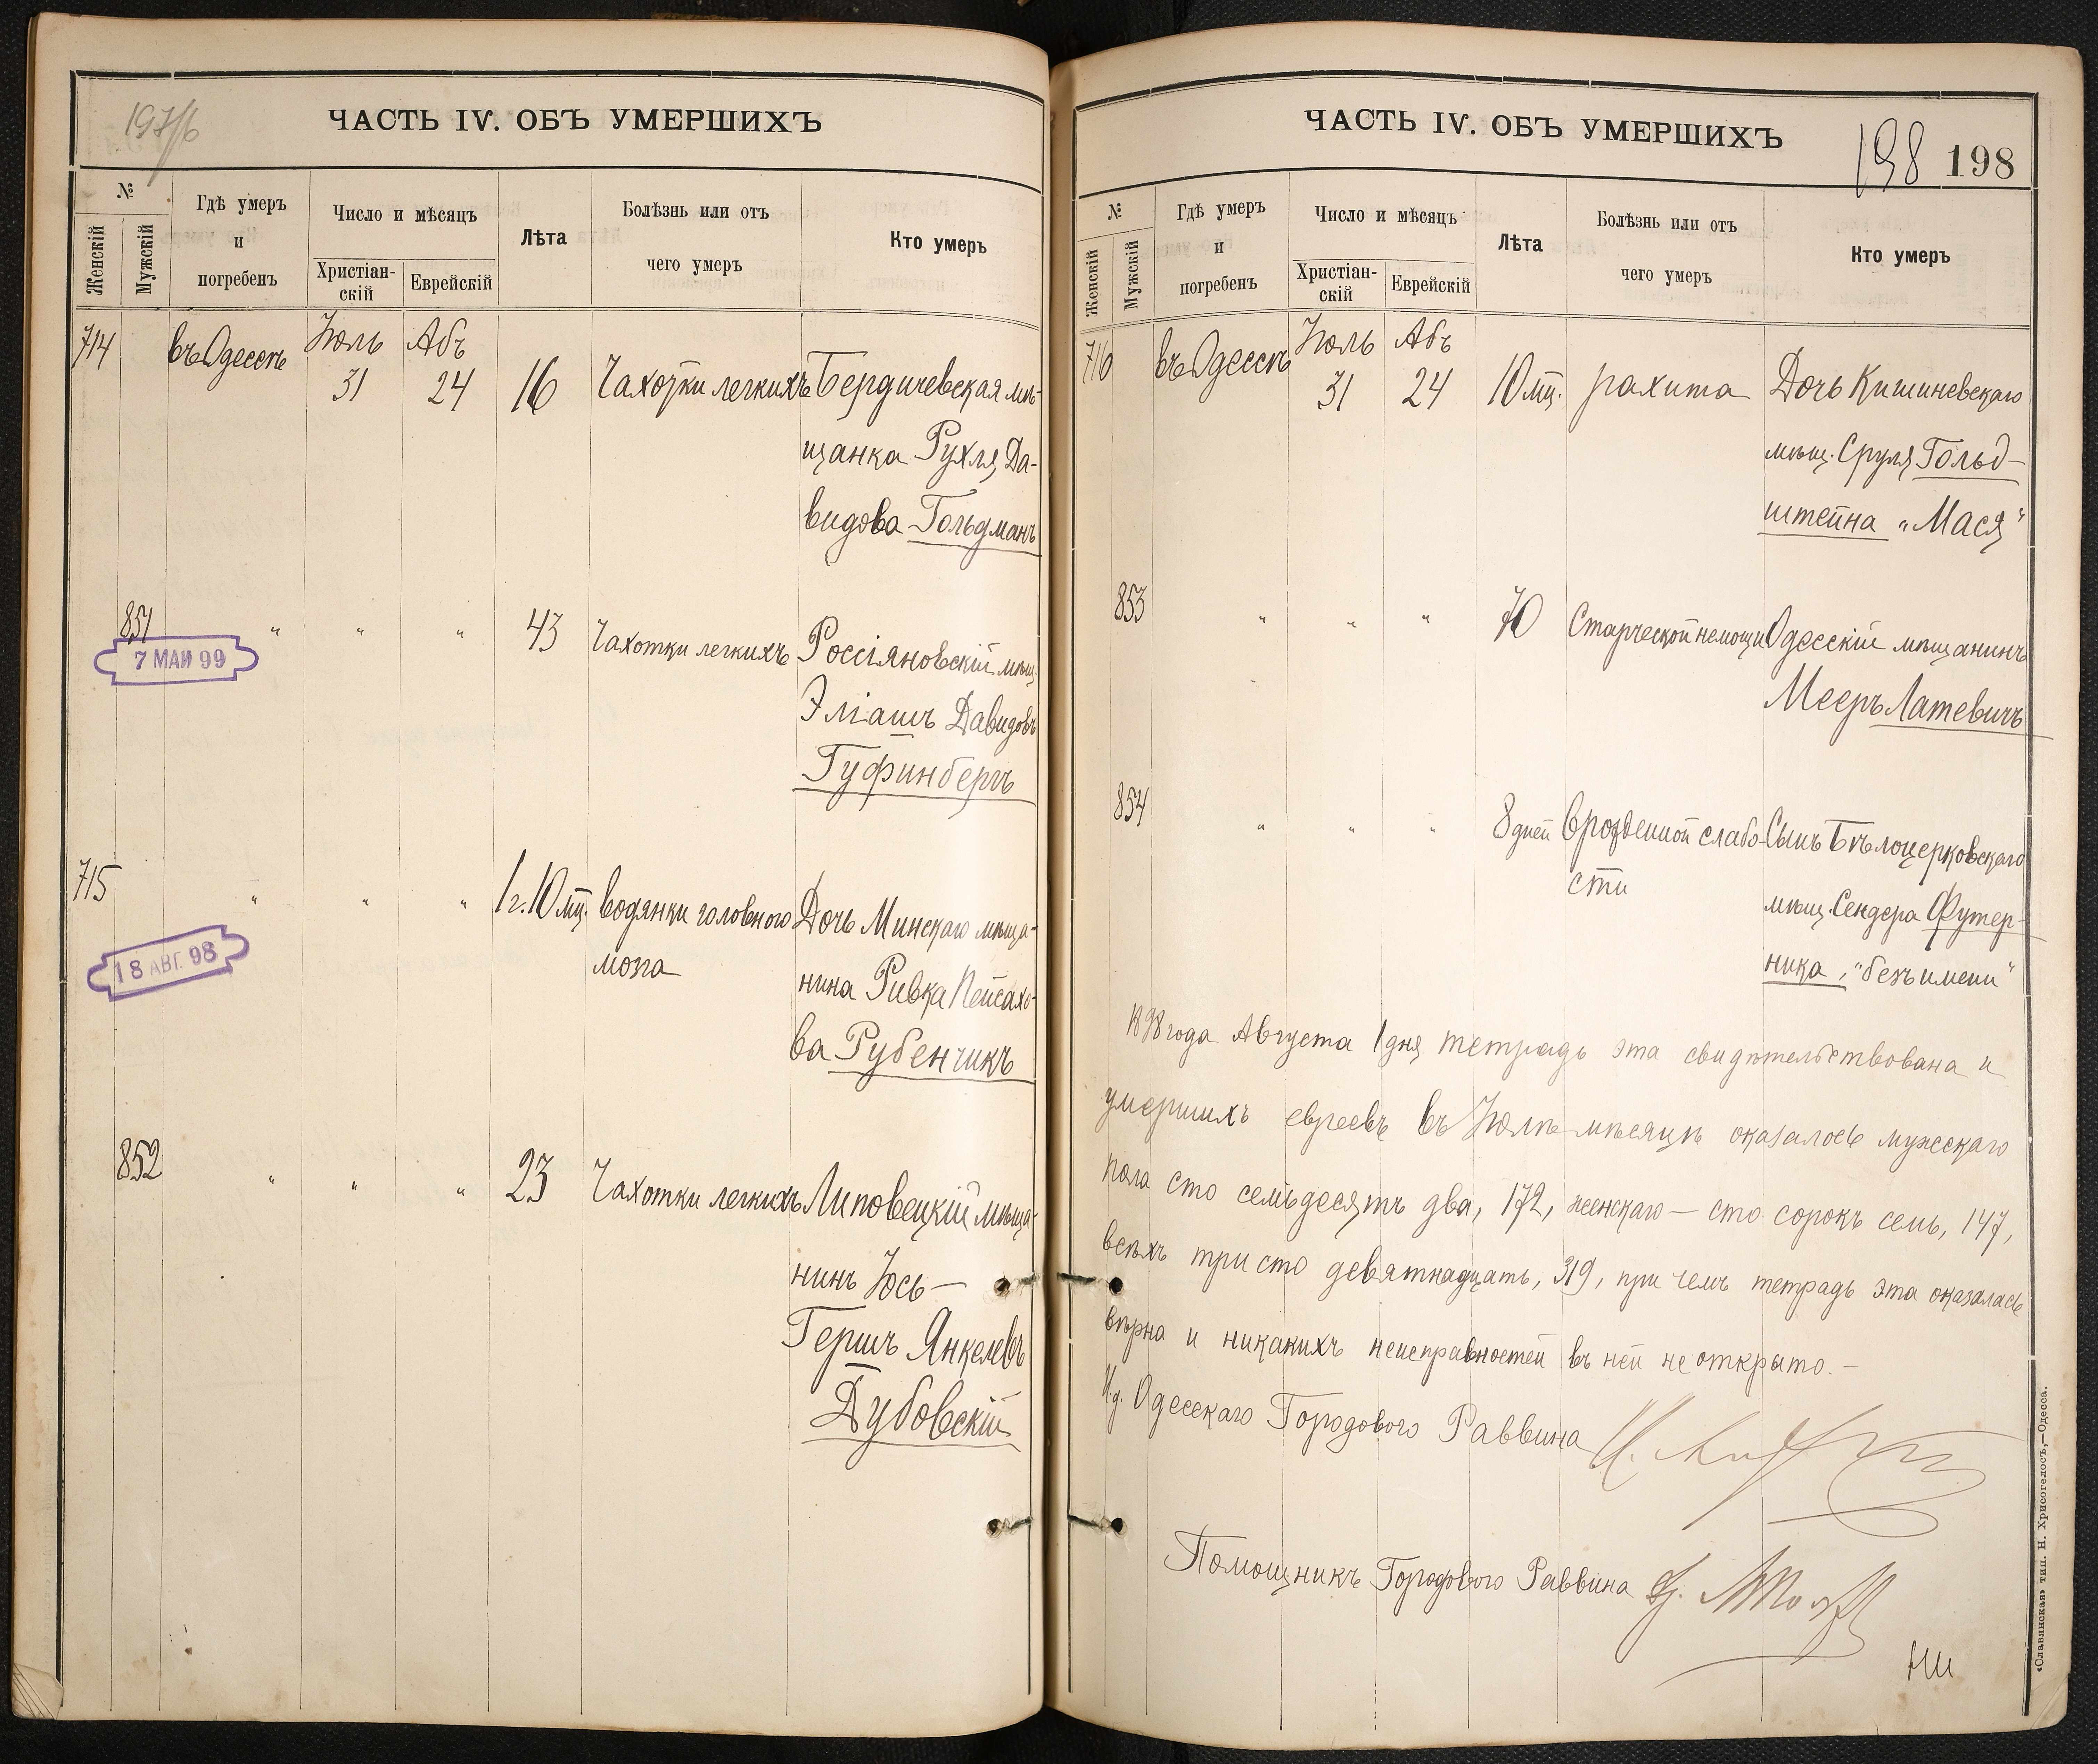 197/б
ЧАСТЬ IV. ОБЪ УМЕРШИХЪ
№
Женскій
Мужскій
Гдѣ умеръ
и
погребенъ
Число и мѣсяцъ
Христіан-
скій
Еврейскій
Лѣта
Болѣзнь или отъ
чего умеръ
Кто умеръ
714 въ Одессѣ Іюль Абъ
31 24 16 Чахотки легкихъ Бердичевская мѣ-
щанка Рухля Да-
видова Гольдманъ
851 " " " 43 Чахотки легкихъ Россіяновскій мѣщ.
7 МАЙ 99
Эліашъ Давидовъ
Гуфинбергъ
715 " " " 1 г. 10 мц. водянки головного Дочь Минскаго мѣща-
мозга
18 АВГ. 98
нина Ривка Пейсахо-
ва Рубенчикъ
852 " " " 23 Чахотки легкихъ Липовецкій мѣща-
нинъ Іось-
Гершъ Янкелевъ
Дубовскій
ЧАСТЬ IV. ОБЪ УМЕРШИХЪ
198 198
№
Женскій
Мужскій
Гдѣ умеръ
и
погребенъ
Число и мѣсяцъ
Христіан-
скій
Еврейскій
Лѣта
Болѣзнь или отъ
чего умеръ
Кто умеръ
716 въ Одессѣ Іюль Абъ
31 24 10 мц. рахита Дочь Кишиневскаго
мѣщ. Сруля Гольд-
штейна „Мася"
853 " " " 70 Старческой немощи Одесскій мѣщанинъ
Мееръ Латевичъ
854 " " " 8 дней Врожденной слабо- Сынъ Бѣлоцерковскаго
сти
мѣщ. Сендера Футер-
ника, "безъ имени"
1898 года Августа 1 дня тетрадь эта свидѣтельствована и
умершихъ евреевъ въ Іюлѣ мѣсяцѣ оказалось мужескаго
пола сто семьдесятъ два, 172, женскаго — сто сорокъ семь, 147,
всѣхъ триста девятнадцать, 319, при чемъ тетрадь эта оказалась
вѣрна и никакихъ неисправностей въ ней не открыто. —
И. д. Одесскаго Городового Раввина
Помощникъ Городового Раввина
«Славянская» тип. Н. Хрисогелосъ,—Одесса.